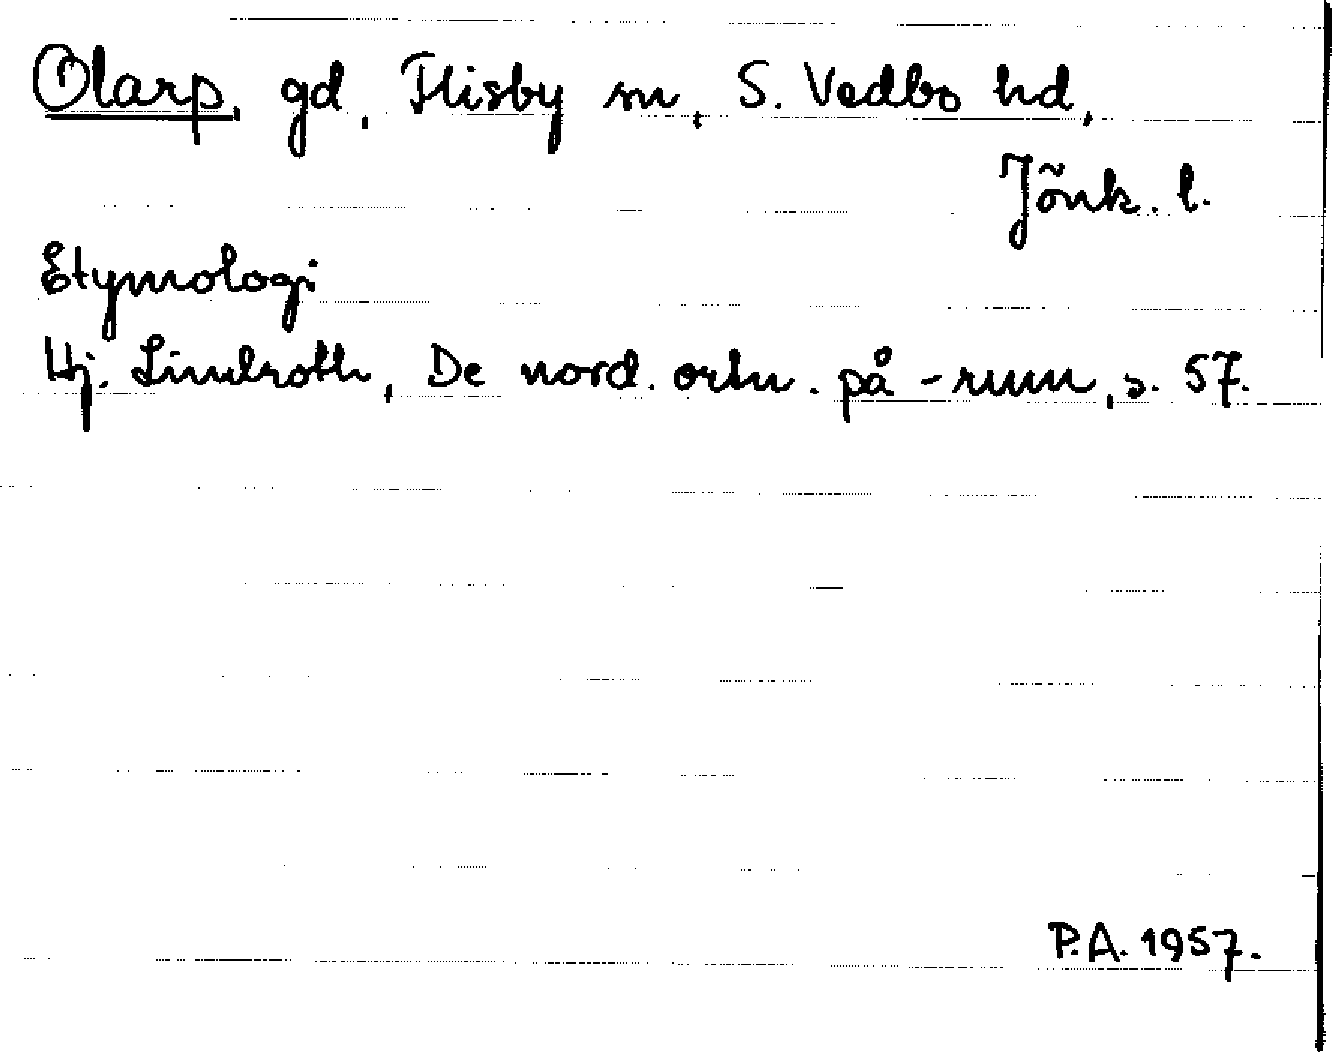 Olarp, gd, Flisby sn, S. Vedbo hd,
Jönk. l.
Etymologi
Hj. Lindroth, De nord. ortn. på -rum, s. 57.
P.A. 1957.